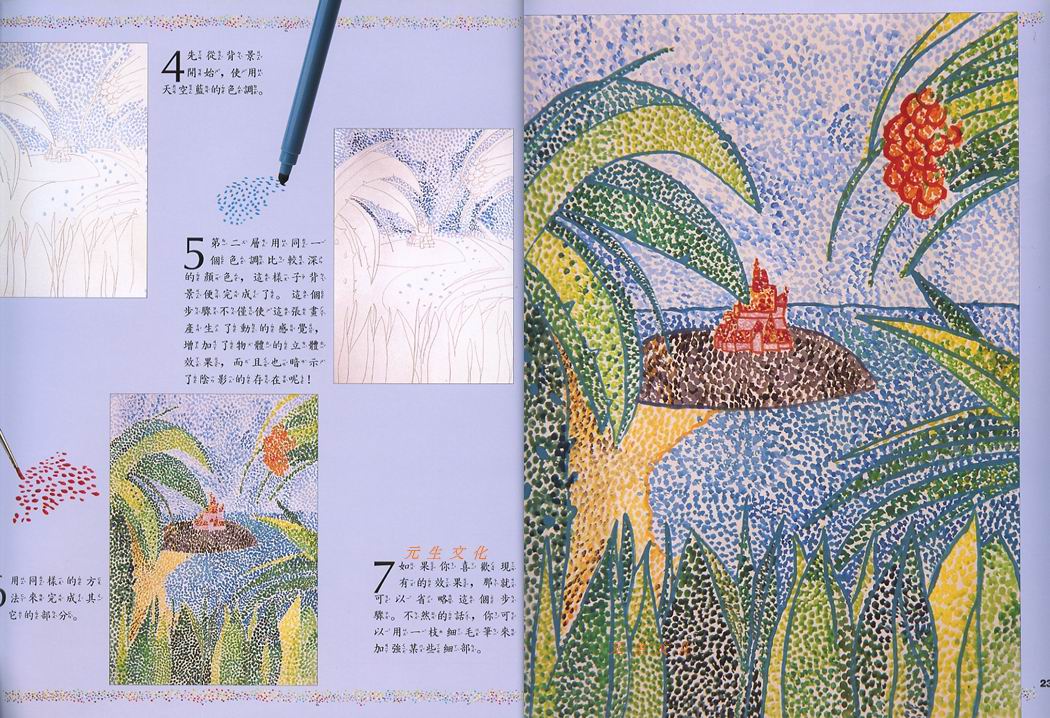 4 先從背景
開始，使用
天空藍的色調。
5 第二層用同一
個色調比較深
的顏色，這樣子背
景便完成了。這個
步驟不僅使這張畫
產生了動的感覺，
增加了物體的立體
效果，而且也暗示
了陰影的存在呢！
用同樣的方
法來完成其
它的部分。
元生文化
7 如果你喜歡現
有的效果，那就
可以省略這個步
驟。不然的話，你可
以用一枝細毛筆來
加強某些細部。
23